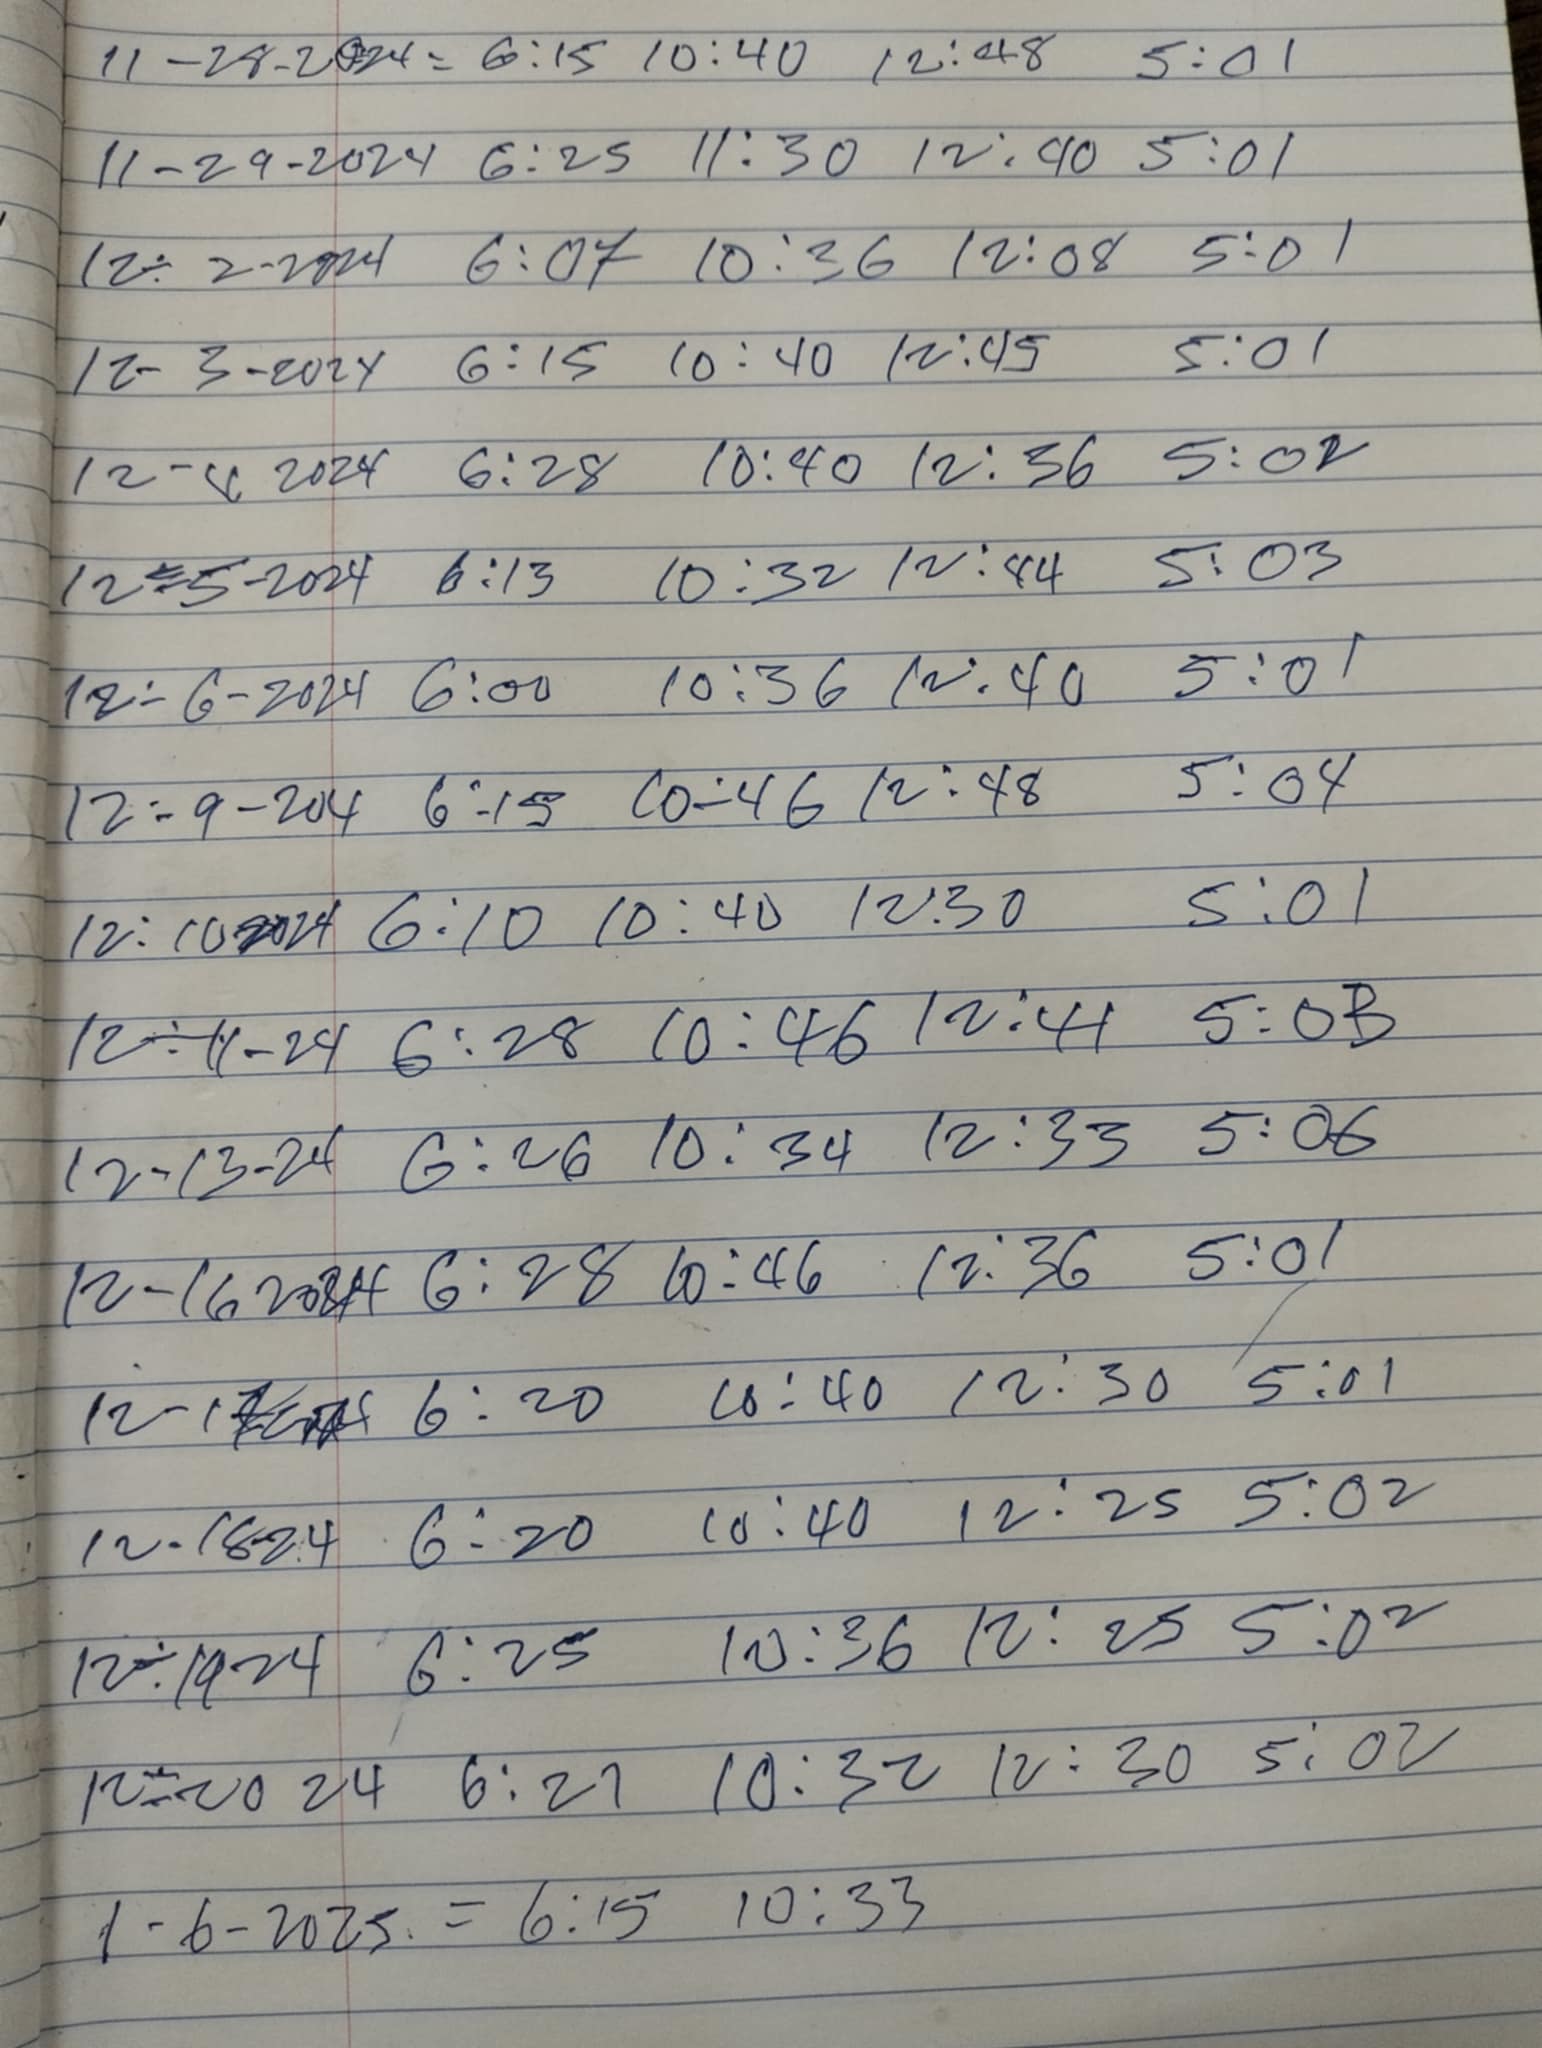 11-28-2024 = 6:15 10:40 12:48 5:01
11-29-2024 6:25 11:30 12:40 5:01
12-2-2024 6:07 10:36 12:08 5:01
12-3-2024 6:15 10:40 12:45 5:01
12-4 2024 6:28 10:40 12:36 5:02
12-5-2024 6:13 10:32 12:44 5:03
12-6-2024 6:00 10:36 12:40 5:01
12-9-204 6:15 10:46 12:48 5:04
12:10 2024 6:10 10:40 12:30 5:01
12-11-24 6:28 10:46 12:41 5:03
12-13-24 6:26 10:34 12:33 5:06
12-16 2024 6:28 10:46 12:36 5:01
6:20 10:40 12:30 5:01
12-18-24 6:20 10:40 12:25 5:02
12-19 24 6:25 10:36 12:25 5:02
12-20 24 6:27 10:32 12:30 5:02
1-6-2025. = 6:15 10:33